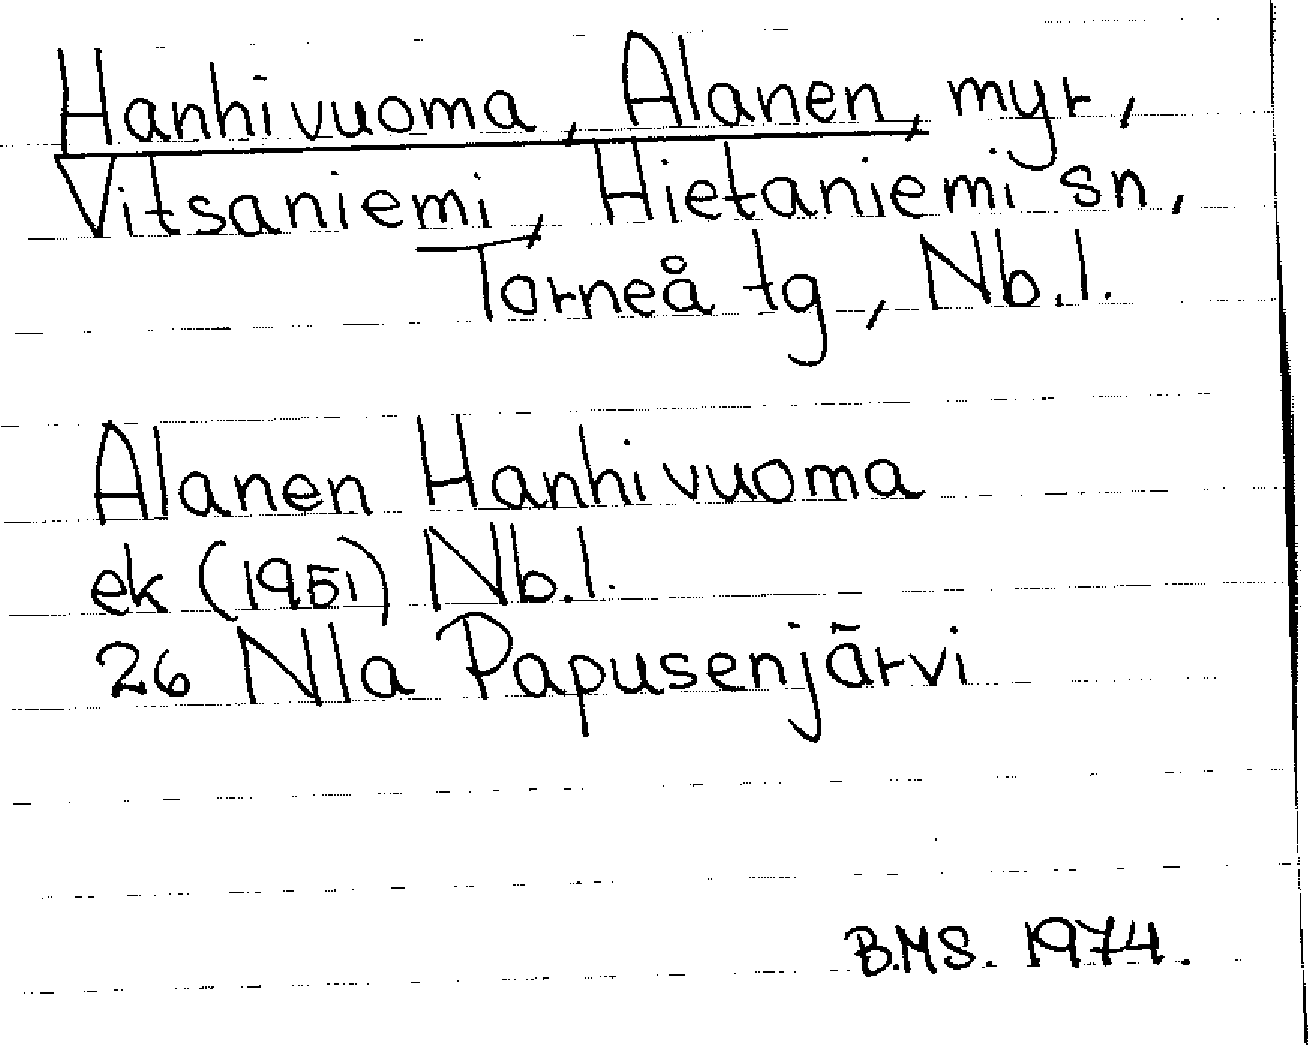 Hanhivuoma, Alanen, myr,
Vitsaniemi, Hietaniemi sn,
Torneå tg, Nb.l.
Alanen Hanhivuoma
ek (1951) Nb.l.
26 Nla Papusenjärvi
B.M.S. 1974.